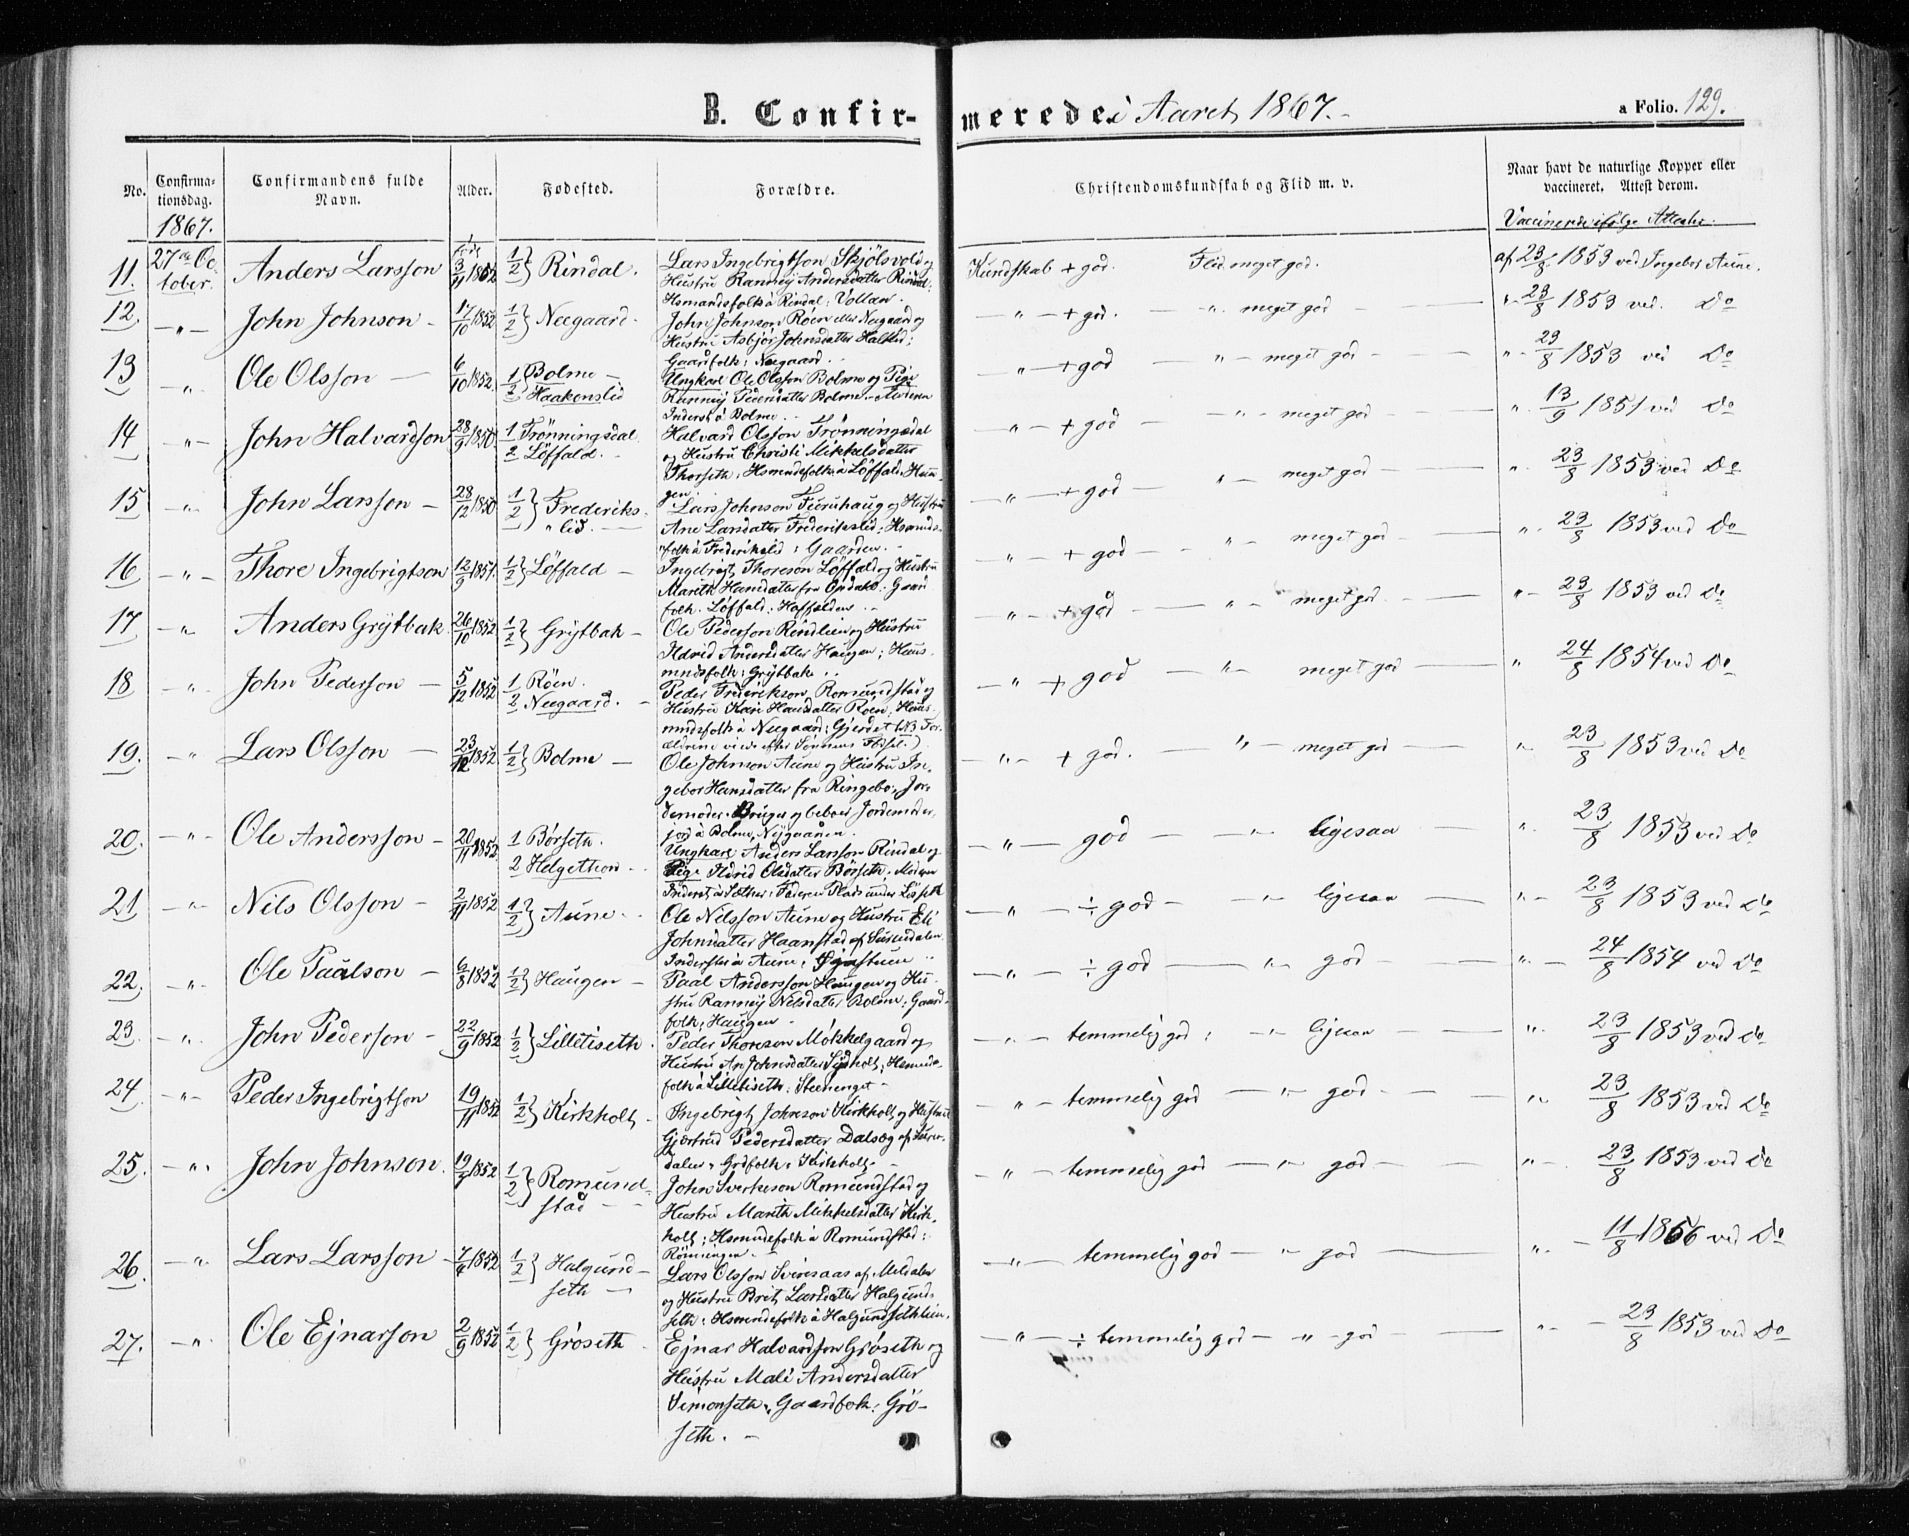 B. Confir-merede i Aaret 1867.
a Folio. 129.
No. Confirmationsdag. Confirmandens fulde Navn. Alder. Fødested. Forældre. Christendomskundskab og Flid m. v. Naar havt de naturlige Kopper eller vaccineret. Attest derom.
1867. Vaccinerede ifølge Attester
11. 27de October. Anders Larsson født 3/11 1852 1/2} Rindal. Kundskab + god. Flid meget god. af 23/8 1853 ved Ingebor Aune.
Lars Ingebrigtson Skjölsvold og
Hustru Rannej Andersdatter Rindal;
Hsmandsfolk à Rindal; Vollan.
12. -"- John Johnson - 17/10 1852 1/2} Neegaard. -"- + god. -"- meget god "- 23/8 1853 ved. Do
John Johnson Röen eller Neegaard og
Hustru Asbjør Johnsdatter Halsted;
Gaardfolk; Neegaard.
13 " Ole Olsson - 6/10 1852. 1 Bolme - 2 Haakenslid -"- + god "- meget god - " 23/8 1853 ved Do
Ungkarl Ole Olsson Bolme og Pige
Rannej Pedersdatter Bolme. - Moderen
Inderst à Bolme.
14 "- John Halvardson 28/9 1850. 1 Trønningsdal. 2 Löffald. -"- + god -"- meget god " 13/9 1851 ved Do
Halvard Olsson Trønningsdal
og Hustru Christi Mikkelsdatter
Thorseth; Hsmandsfolk à Löffald; Haugen.
15 -"- John Larsson - 28/12 1850 1/2} Frederikslid. -"- + god "- meget god " 23/8 1853 ved Do
Lars Johnson Furuhaug og Hustru
Ane Larsdatter Frederikslid; Hsmandsfolk
à Frederikslid; Gaarden.
16 -"- Thore Ingebrigtson 12/9 1851. 1/2} Löffald - -"- + god -"- meget god " 23/8 1853 ved Do
Ingebrigt Thoreson Löffald og Hustru
Marith Hansdatter fra Opdahl; Gaardfolk.
Löffald;
17 -" Anders Grÿtbak 26/10 1852. 1/2} Grÿtbak - -"- + god -"- meget god "- 23/8 1853 ved Do
Ole Pederson Rindlien og Hustru
Ildrid Andersdatter Haugen; Husmndsfolk;
Grÿtbak
18 "- John Pederson - 5/12 1852 1 Röen. 2 Neegaard. -"- + god -"- meget god " 24/8 1854 ved Do
Peder Frederikson Romundstad og
Hustru Kari Hansdatter Roen; Husmndsfolk
à Neegaard; Gjerdet
19. -"- Lars Olsson - 23/12 1852 1/2} Bolme - -"- + god. -"- meget god " 23/8 1853 ved Do
Ole Johnson Aune og Hustru Ingebor
Hansdatter fra Ringebo; Jordemoder.
Bruger og beboer Jordemoderjord
à Bolme
20. -"- Ole Andersson - 20/11 1852 1 Börseth. 2 Helgethon. -"- god -"- ligesaa " 23/8 1853 ved Do
Ungkarl Anders Larsson Rindal og
Pige Ildrid Olsdatter Börseth. Moderen
Inderst à
21 -"- Nils Olsson - 2/11 1852 1/2} Aune. -"- ÷ god -"- ligesaa "- 23/8 1853 ved Do
Ole Nilsson Aune og Hustru Eli
Johnsdatter Haanstad af Surendalen
à Aune;
22. -"- Ole Paalson - 6/8 1852 1/2} Haugen - -"- ÷ god -"- god "- 24/8 1854 ved Do
Paal Andersson Haugen og Hustru
Rannej Nilsdatter Bolme; Gaardfolk;
Haugen
23. "- John Pederson - 22/9 1852 1/2} Lilletiseth. -"- temmelig god; -"- ligesaa " 23/8 1853 ved Do
Peder Thoreson Mokkelgaard og
Hustru An Johnsdatter; Hsmndsfolk
à Lilletiseth; Steenenget -
24. -"- Peder Ingebrigtson 19/11 1852 1/2} Kirkholt - -"- temmelig god -"- god " 23/8 1853 ved Do
Ingebrigt Johnson Kirkholt og Hustru
Gjertrud Pedersdatter Dalsæg af Surendalen;
Grdfolk; Kirkholt -
25. -"- John Johnson. 19/9 1852 1/2} Romundstad - "- temmelig god -"- god "- 23/8 1853 ved Do
John Sverkeson Romundstad og
Hustru Marith Mikkelsdatter Kirkholt;
Hsmndsfolk à Romundstad;
Rönningen -
26. -"- Lars Larsson - 7/6 1852 1/2} Halgundseth - -"- temmelig god -"- god " 11/8 1866 ved Do
Lars Olsson Sviresaas af Meldalen
og Hustru Brit Larsdatter Halgundseth;
Hsmndsfolk à Halgundsethlien.
27. -"- Ole Ejnarson 2/9 1852 1/2} Gröseth -"- ÷ temmelig god -"- god " 23/8 1853 ved Do
Ejnar Halvardson Gröseth og
Hustru Mali Andersdatter
Simonseth; Gaardfolk; Gröseth. -